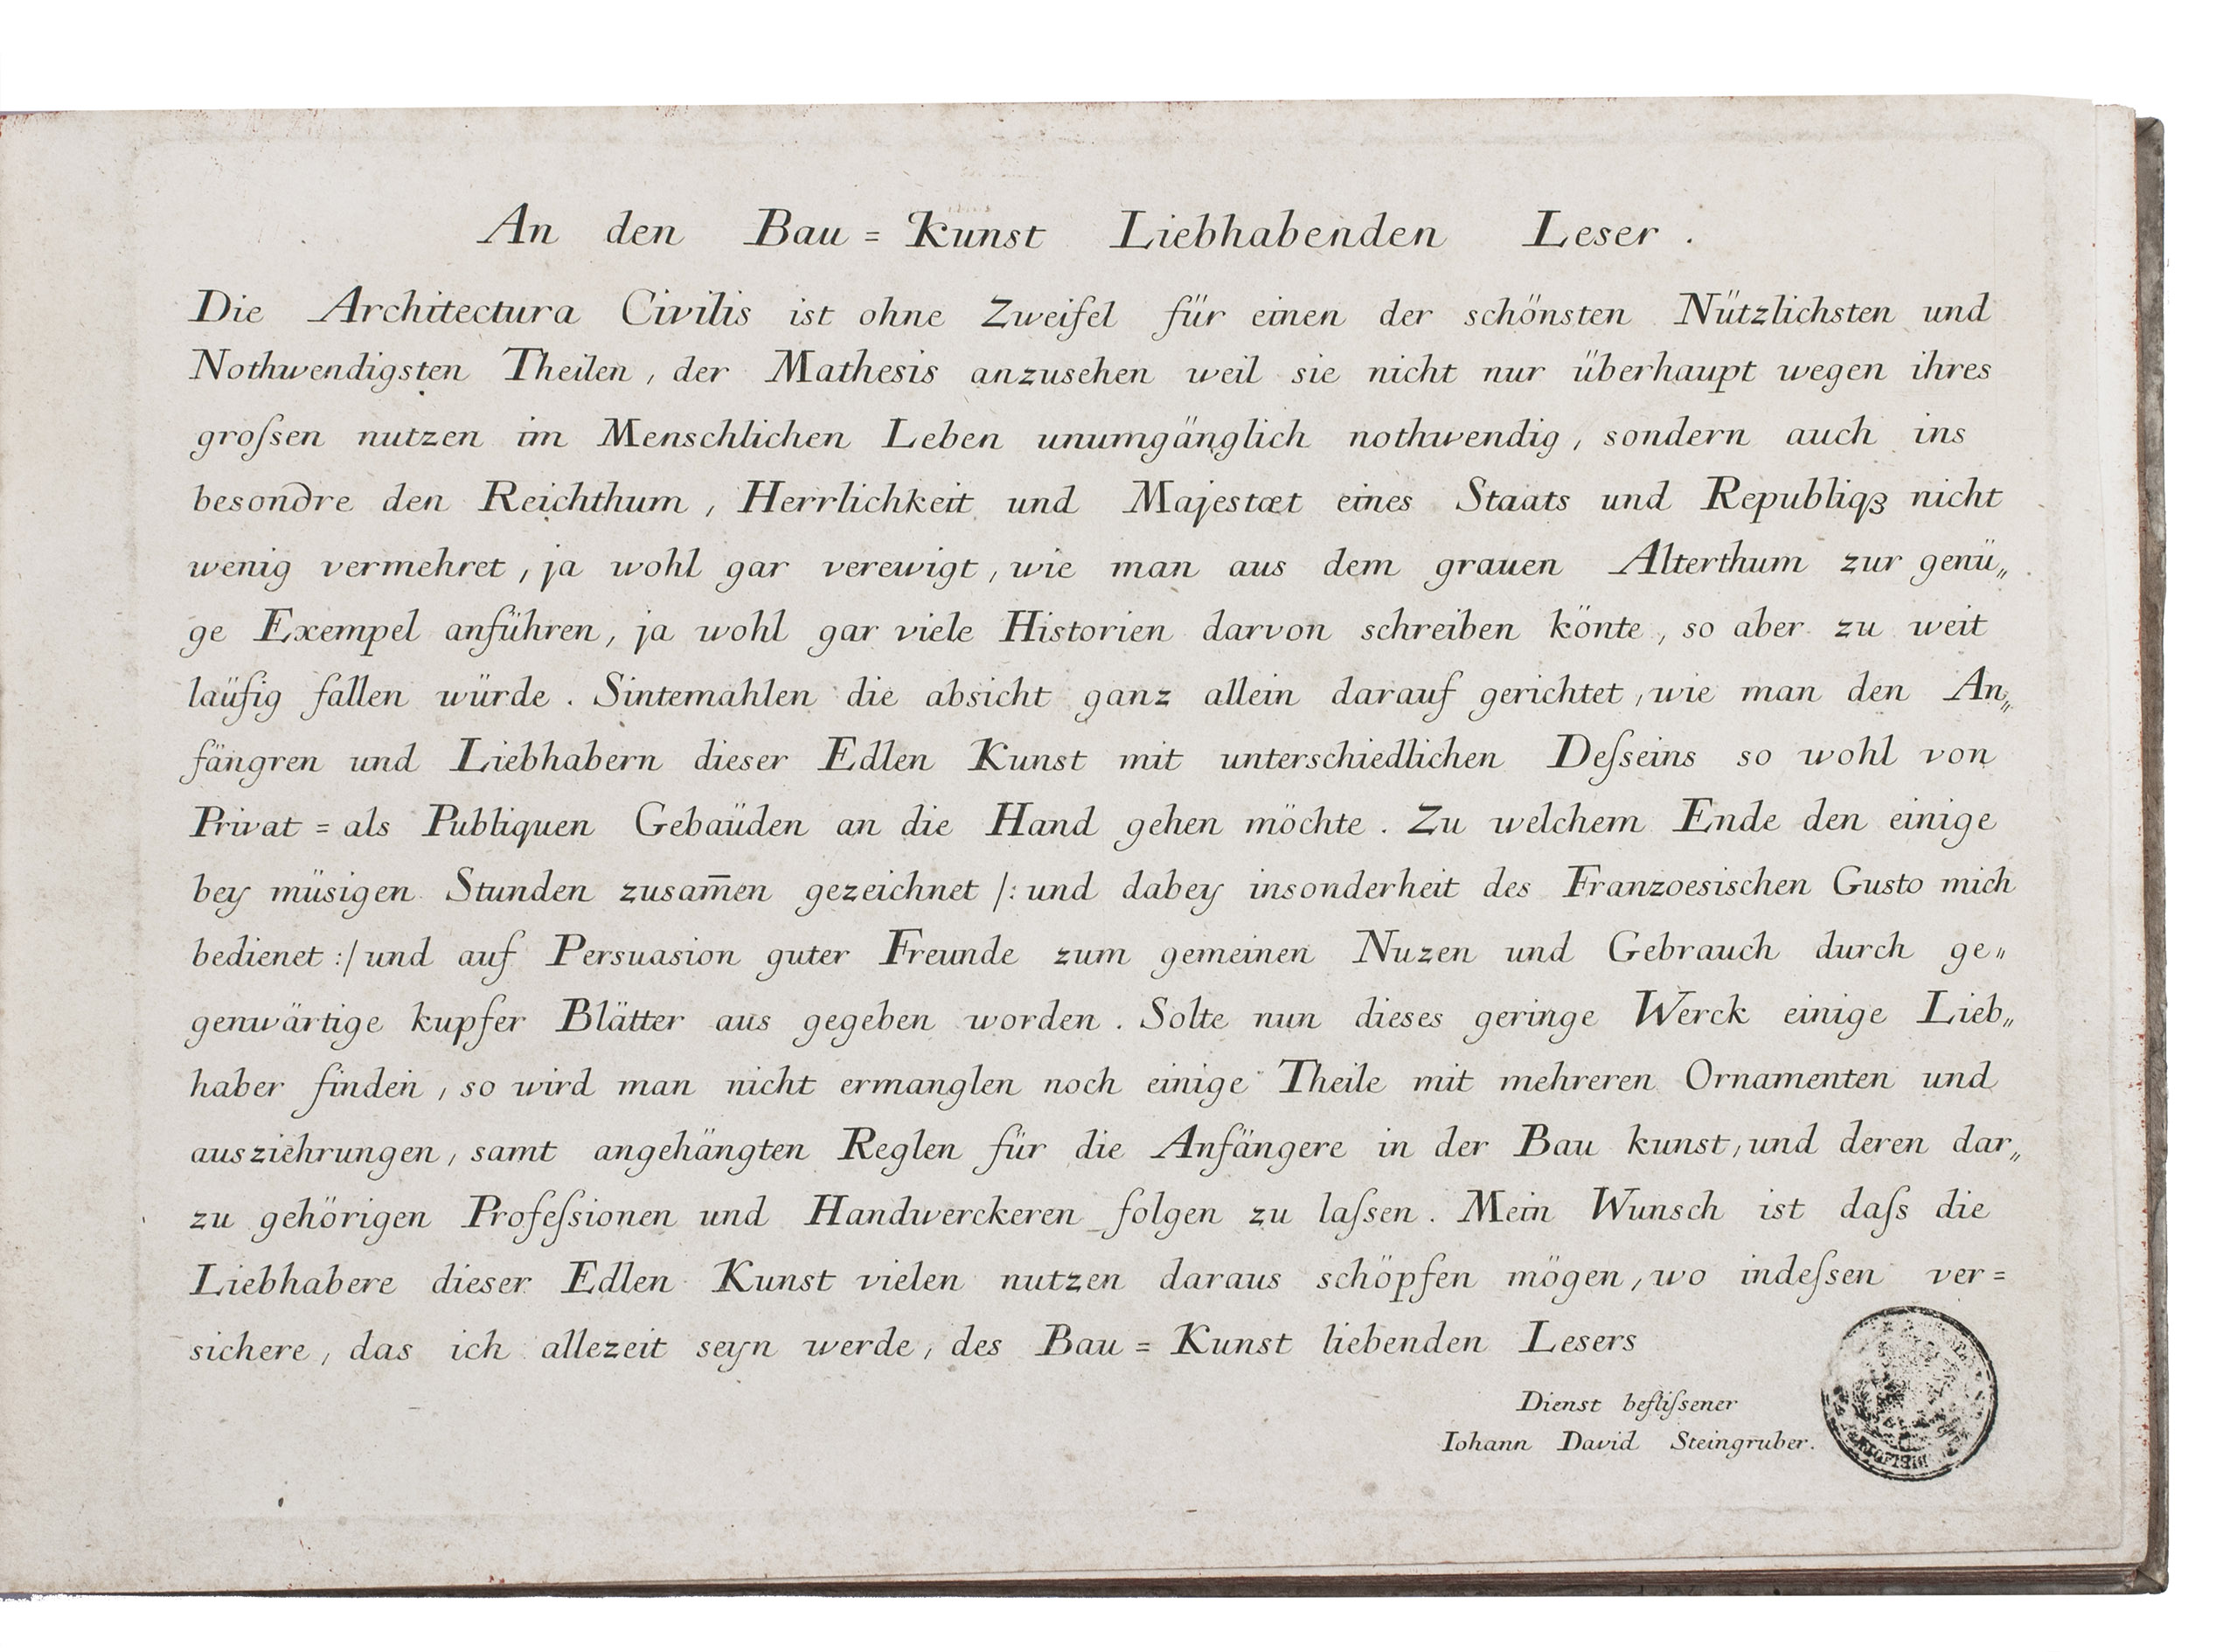 An den Bau = Kunst Liebhabenden Leser .
Die Architectura Civilis ist ohne Zweifel für einen der schönsten Nützlichsten und
Nothwendigsten Theilen , der Mathesis anzusehen weil sie nicht nur überhaupt wegen ihres
groſsen nutzen im Menschlichen Leben unumgänglich nothwendig , sondern auch ins
besondre den Reichthum , Herrlichkeit und Majestæt eines Staats und Republiqꝫ nicht
wenig vermehret , ja wohl gar verewigt , wie man aus dem grauen Alterthum zur genü„
ge Exempel anführen , ja wohl gar viele Historien darvon schreiben könte , so aber zu weit
laüfig fallen würde . Sintemahlen die absicht ganz allein darauf gerichtet , wie man den An„
fängren und Liebhabern dieser Edlen Kunst mit unterschiedlichen Deſseins so wohl von
Privat = als Publiquen Gebaüden an die Hand gehen möchte . Zu welchem Ende den einige
bey müsigen Stunden zusam̅en gezeichnet /: und dabey insonderheit des Franzoesischen Gusto mich
bedienet :/ und auf Persuasion guter Freunde zum gemeinen Nuzen und Gebrauch durch ge„
genwärtige kupfer Blätter aus gegeben worden . Solte nun dieses geringe Werck einige Lieb„
haber finden , so wird man nicht ermanglen noch einige Theile mit mehreren Ornamenten und
ausziehrungen , samt angehängten Reglen für die Anfängere in der Bau kunst , und deren dar„
zu gehörigen Profeſsionen und Handwerckeren folgen zu laſsen . Mein Wunsch ist daſs die
Liebhabere dieser Edlen Kunst vielen nutzen daraus schöpfen mögen , wo indeſsen ver =
sichere , das ich allezeit seyn werde , des Bau = Kunst liebenden Lesers
Dienst befliſsener
Iohann David Steingruber .